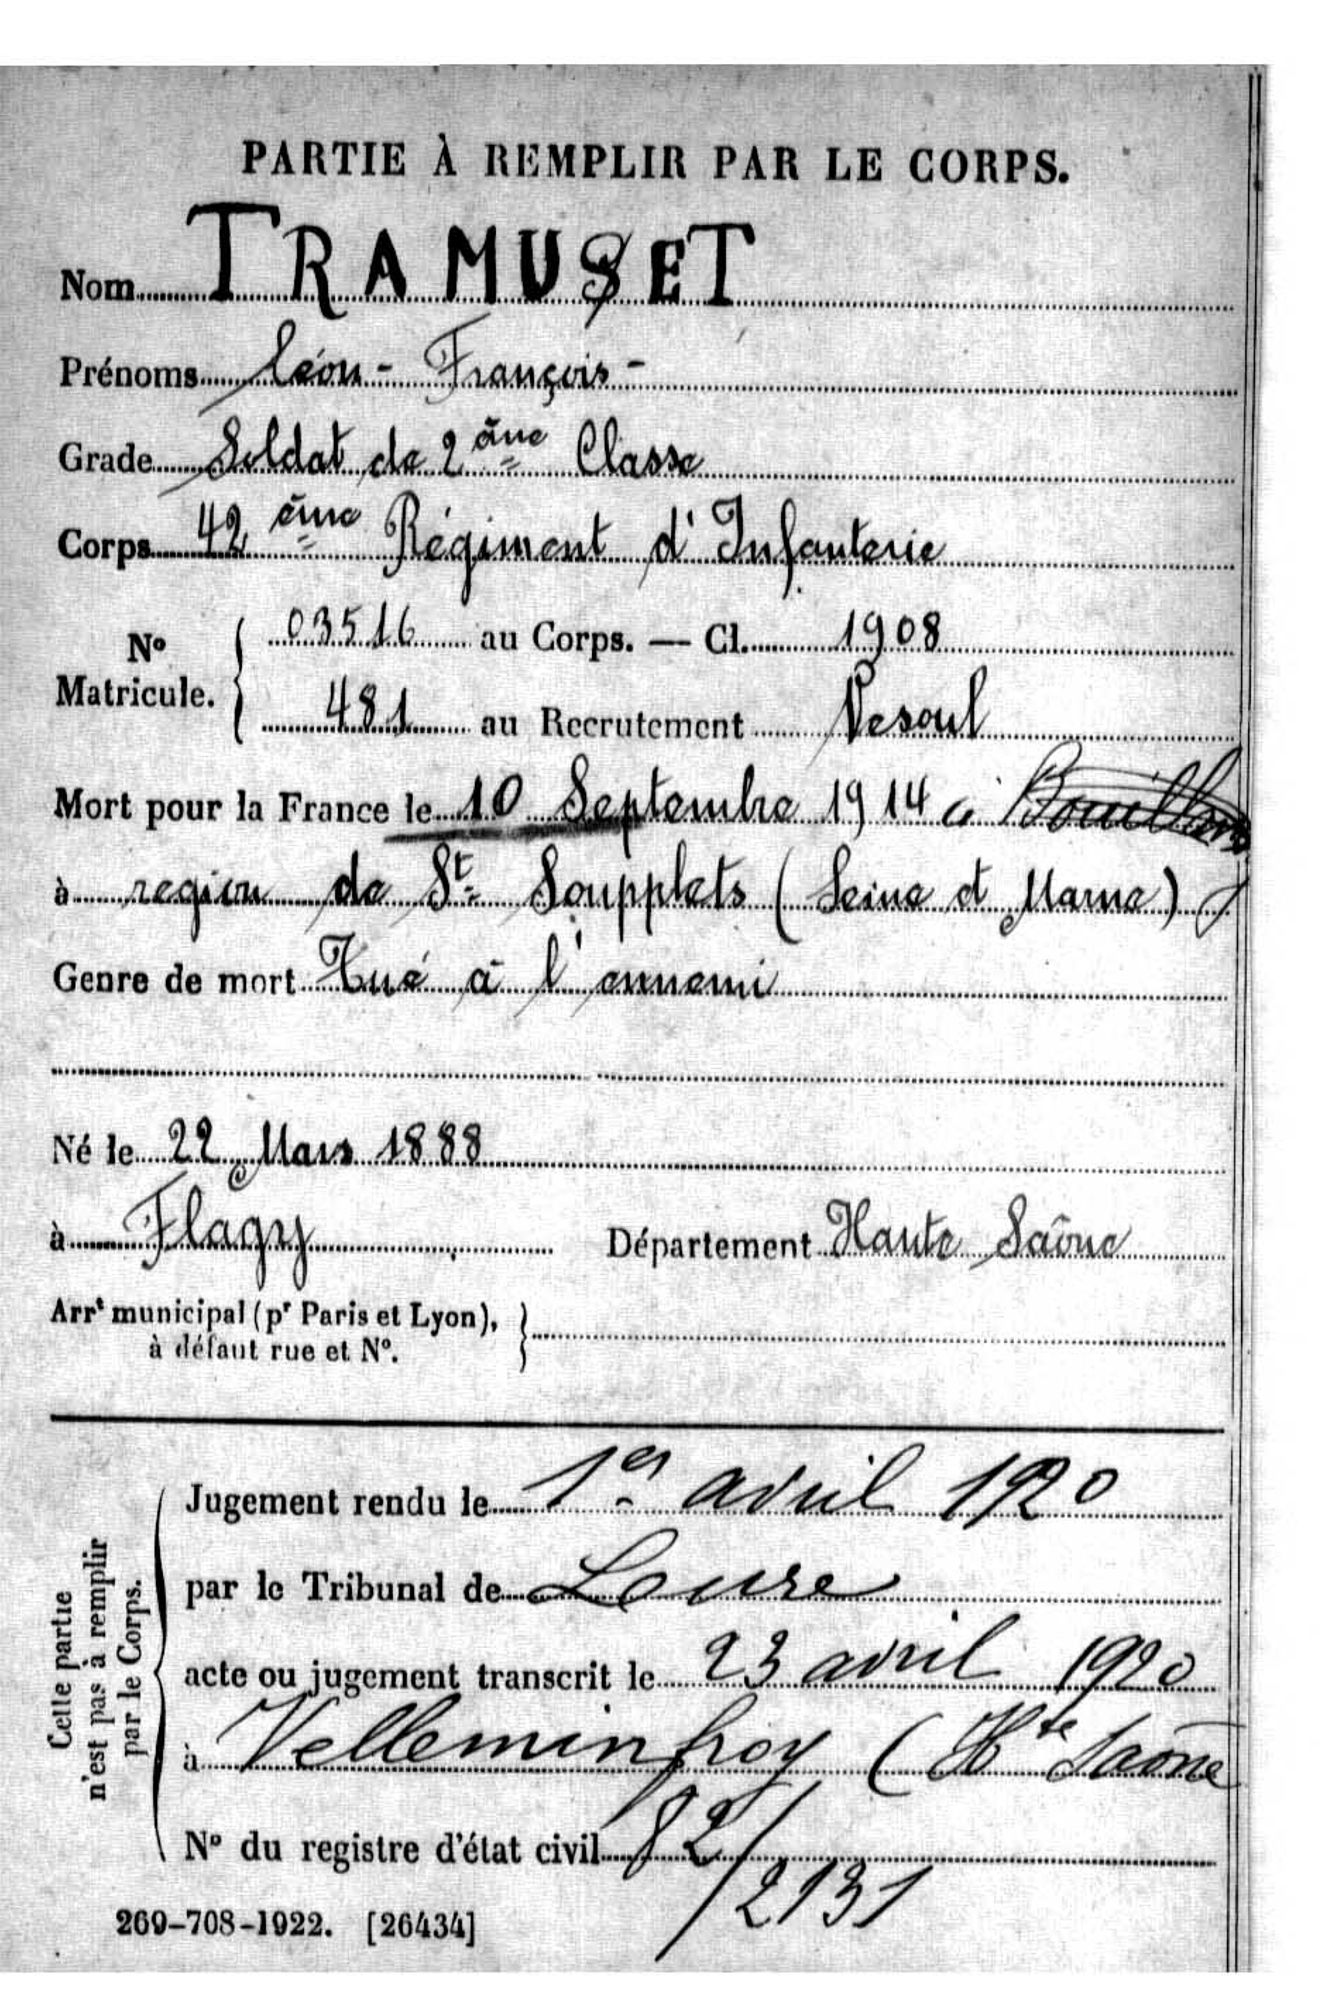 PARTIE À REMPLIR PAR LE CORPS.
Nom TRAMUSET
Prénoms Léon - François -
Grade Soldat de 2ème Classe
Corps 42ème Régiment d'Infanterie
No Matricule. { 03516 au Corps. — Cl. 1908
481 au Recrutement Vesoul
Mort pour la France le 10 Septembre 1914 à
à region de St Soupplets (Seine et Marne)
Genre de mort Tué à l'ennemi
Né le 22 Mars 1888
à Flagy Département Haute Saône
Arrt municipal (pr Paris et Lyon), à défaut rue et No. }
Cette partie n'est pas à remplir par le Corps.
Jugement rendu le 1er avril 1920
par le Tribunal de Lure
acte ou jugement transcrit le 23 avril 1920
à Velleminfroy (Hte Saône
No du registre d'état civil 82/2131
269-708-1922. [26434]